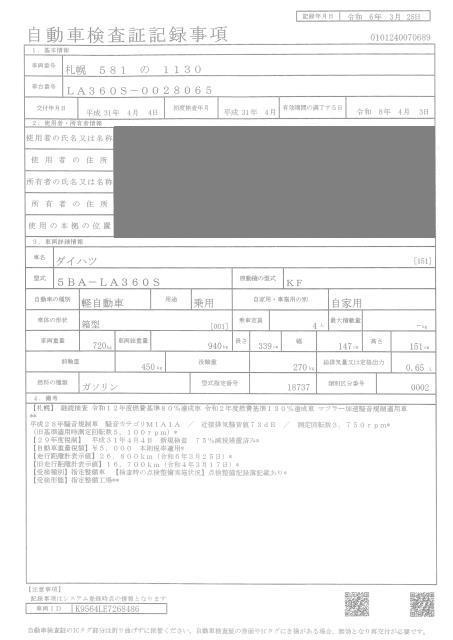 記録年月日 令和 6年 3月 26日
自動車検査証記録事項
0101240070689
1. 基本情報
車両番号 札幌 581 の 1130
車台番号 LA360S-0028065
交付年月日 平成 31年 4月 4日 初度検査年月 平成 31年 4月 有効期間の満了する日 令和 8年 4月 3日
2. 使用者・所有者情報
使用者の氏名又は名称
使用者の住所
所有者の氏名又は名称
所有者の住所
使用の本拠の位置
3. 車両詳細情報
車名 ダイハツ [151]
型式 5BA-LA360S 原動機の型式 KF
自動車の種別 軽自動車 用途 乗用 自家用・事業用の別 自家用
車体の形状 箱型 [001] 乗車定員 4人 最大積載量 -kg
車両重量 720kg 車両総重量 940kg 長さ 339cm 幅 147cm 高さ 151cm
前軸重 450kg 後軸重 270kg 総排気量又は定格出力 0.65 L
燃料の種類 ガソリン 型式指定番号 18737 類別区分番号 0002
4. 備考
【札幌】 継続検査 令和12年度燃費基準80%達成車 令和2年度燃費基準130%達成車 マフラー加速騒音規制適用車
**
平成28年騒音規制車 騒音カテゴリM1A1A / 近接排気騒音値73dB / 測定回転数3,750rpm*
(旧基準適用時測定回転数5,100rpm)*
【29年度税制】 平成31年4月4日 新規検査 75%減税措置済み*
【自動車重量税額】¥5,000 本則税率適用*
【走行距離計表示値】26,800km(令和6年3月25日)*
【旧走行距離計表示値】16,700km(令和4年3月17日)*
【受検種別】指定整備車 【検査時の点検整備実施状況】点検整備記録簿記載あり*
【受検形態】指定整備工場**
【注意事項】
記録事項はシステム登録時点の情報となります
車両ID K9564LE7268486
自動車検査証のICタグ部分は折り曲げずに携帯ください。自動車検査証の券面やICタグに き損がある場合、無効となり再交付が必要です。